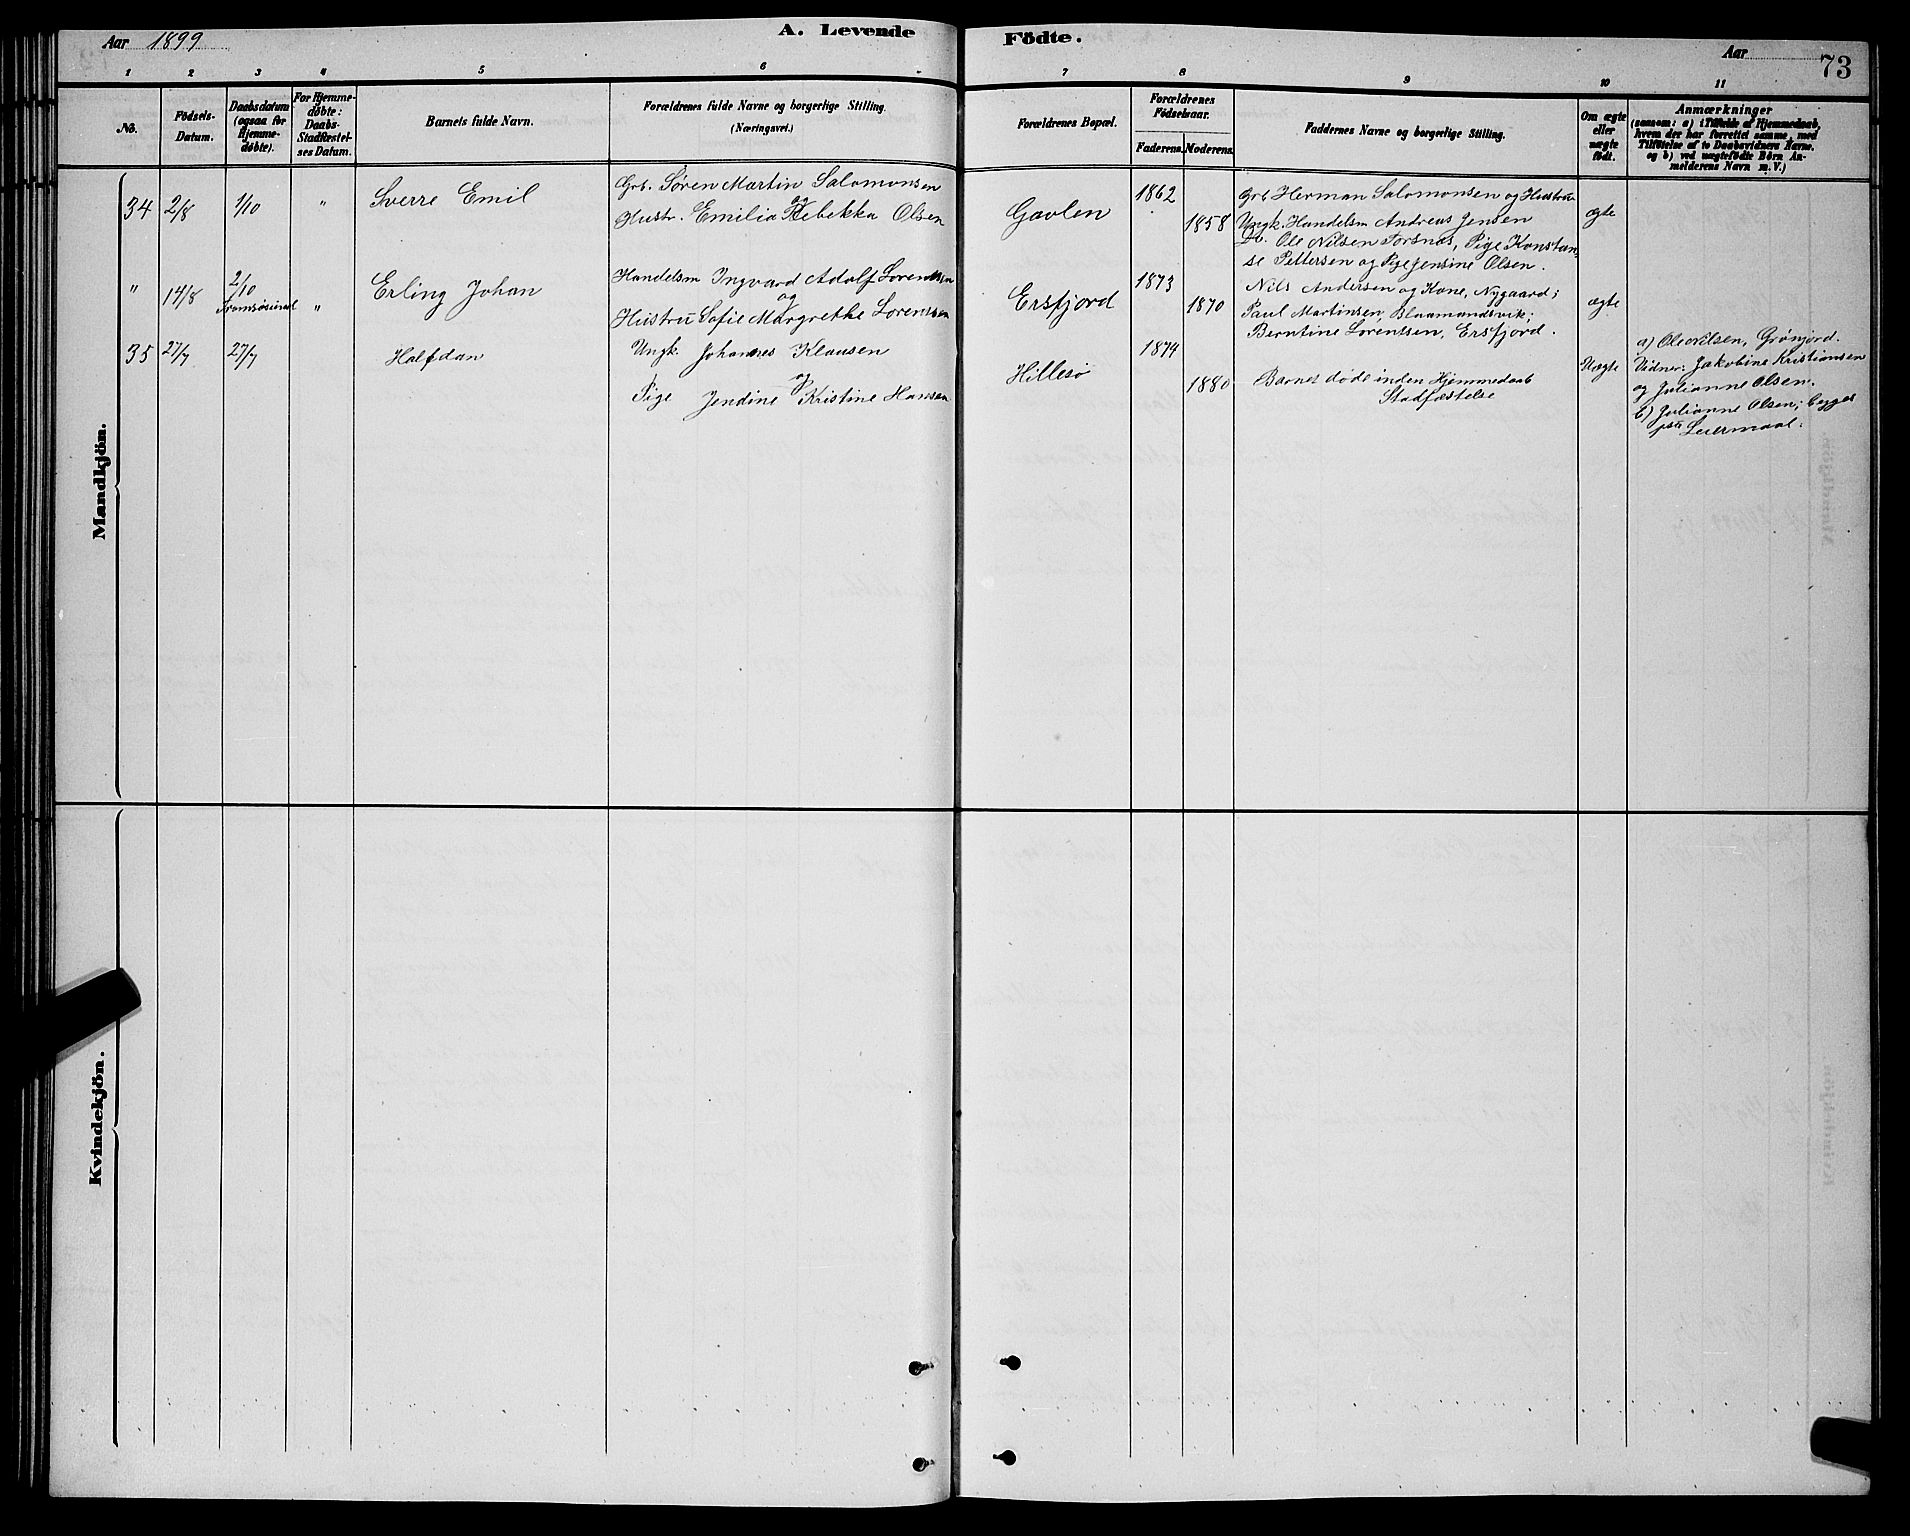 Aar 1899
A. Levende Födte.
Aar
73
1 2 3 4 5 6 7 8 9 10 11
No.
Födsels-Datum.
Daabsdatum (ogsaa for Hjemme-döbte).
For Hjemme-döbte: Daabs-Stadfæstel-ses Datum.
Barnets fulde Navn.
Forældrenes fulde Navne og borgerlige Stilling.
(Næringsvei.)
Forældrenes Bopæl.
Forældrenes Födselsaar.
Faderens. Moderens.
Faddernes Navne og borgerlige Stilling.
Om ægte eller uægte födt.
Anmærkninger
(saasom: a) i Tilfælde af Hjemmedaab,
hvem der har forrettet samme, med
Tilföielse af to Daabsvidners Navne.
og b) ved uægtefödte Börn An-
melderens Navn m. V.)
Mandkjön.
34 2/8 1/10 " Sverre Emil
Grb. Søren Martin Salomonsen
og
Hustr. Emilia Rebekka Olsen
Gavlen
1862
1858
Grb Herman Salomonsen og Hustru
Ungk. Handelsm Andreas Jensen
Do. Ole Nilsen Torsnæs, Pige Konstan-
se Pettersen og Pige Jensine Olsen.
ægte
" 14/8 2/10 " Erling Johan
Handelsm Ingvard Adolf Lorentsen
og
Hustru Sofie Margrethe Lorensen
Ersfjord
1873
1870
Nils Andersen og Kone, Nygaard;
Paul Martinsen, Blaamandsvik;
Berntine Lorentsen, Ersfjord.
ægte
35 27/7 27/7 Halfdan
Ungk. Johannes Klausen
og
Pige Jendine Kristine Hansen
Hillesø
1874
1880
Barnet døde inden Hjemmedaab
Stadfæstelse
Uægte
a) Ole Nilsen, Grønjord.
Vidner: Jakobine Kristiansen
og Julianne Olsen.
b) Julianne Olsen; begges
1ste Leiermaal.
Kvindekjön.